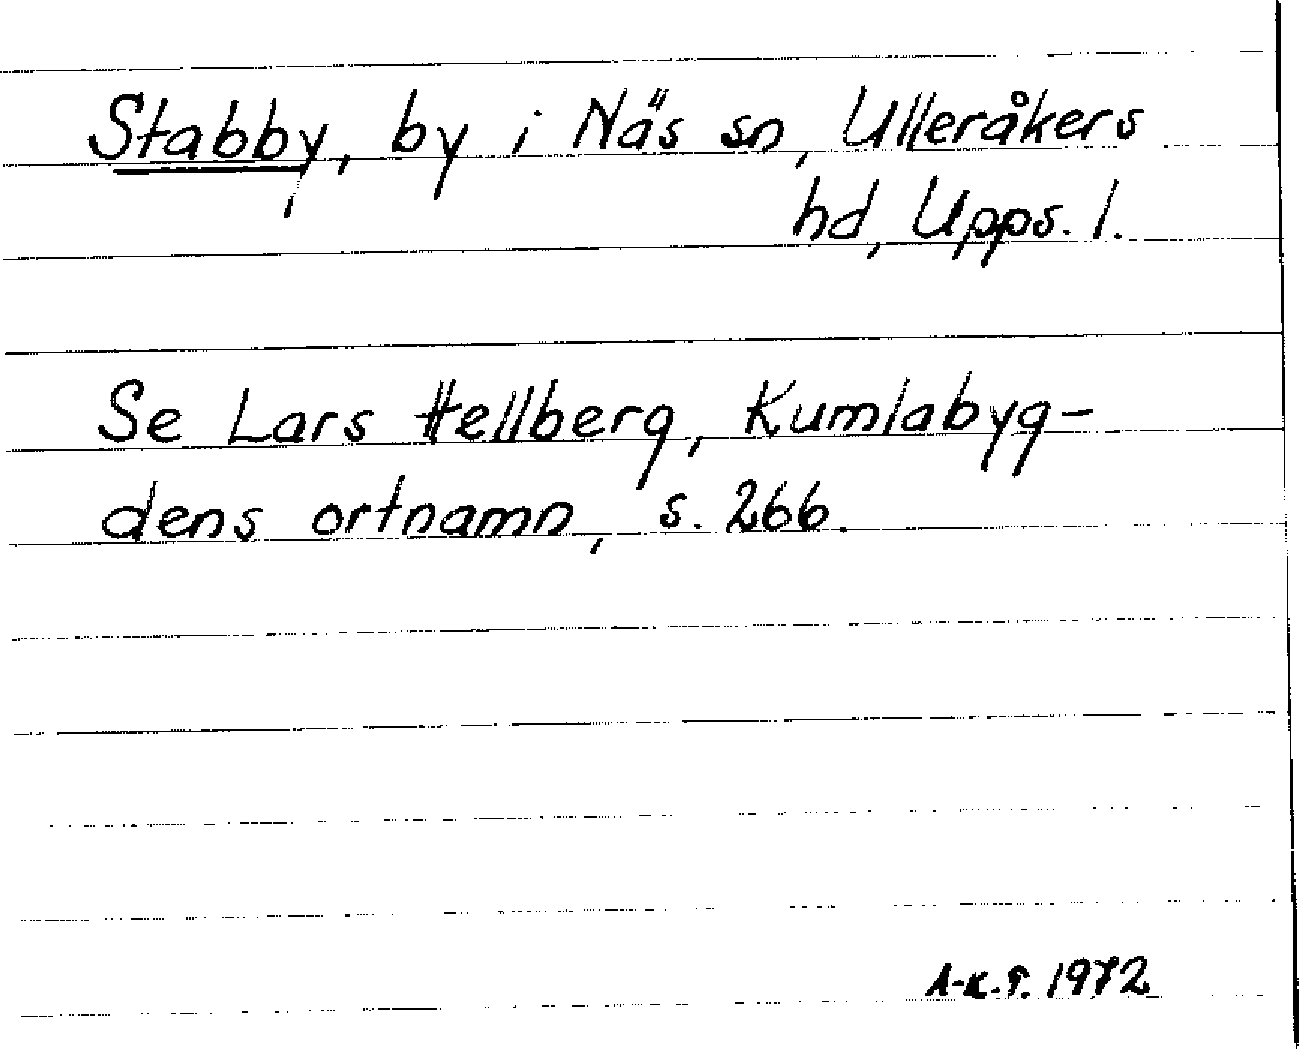 Stabby, by i Näs sn, Ulleråkers
hd, Upps. l.
Se Lars Hellberg, Kumlabyg-
dens ortnamn, s. 266.
A-K.P. 1972